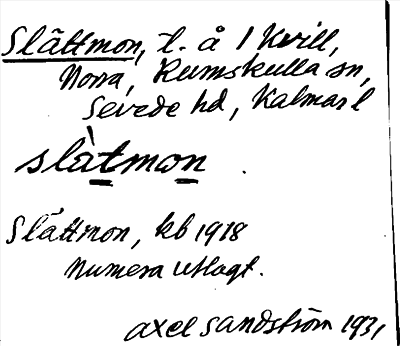 Slättmon, t. å 1 Kvill,
Norra, Rumskulla sn,
Sevede hd, Kalmar l
slàtmon .
Slättmon, kb 1918
Numera utlagt.
Axel Sandström 1931